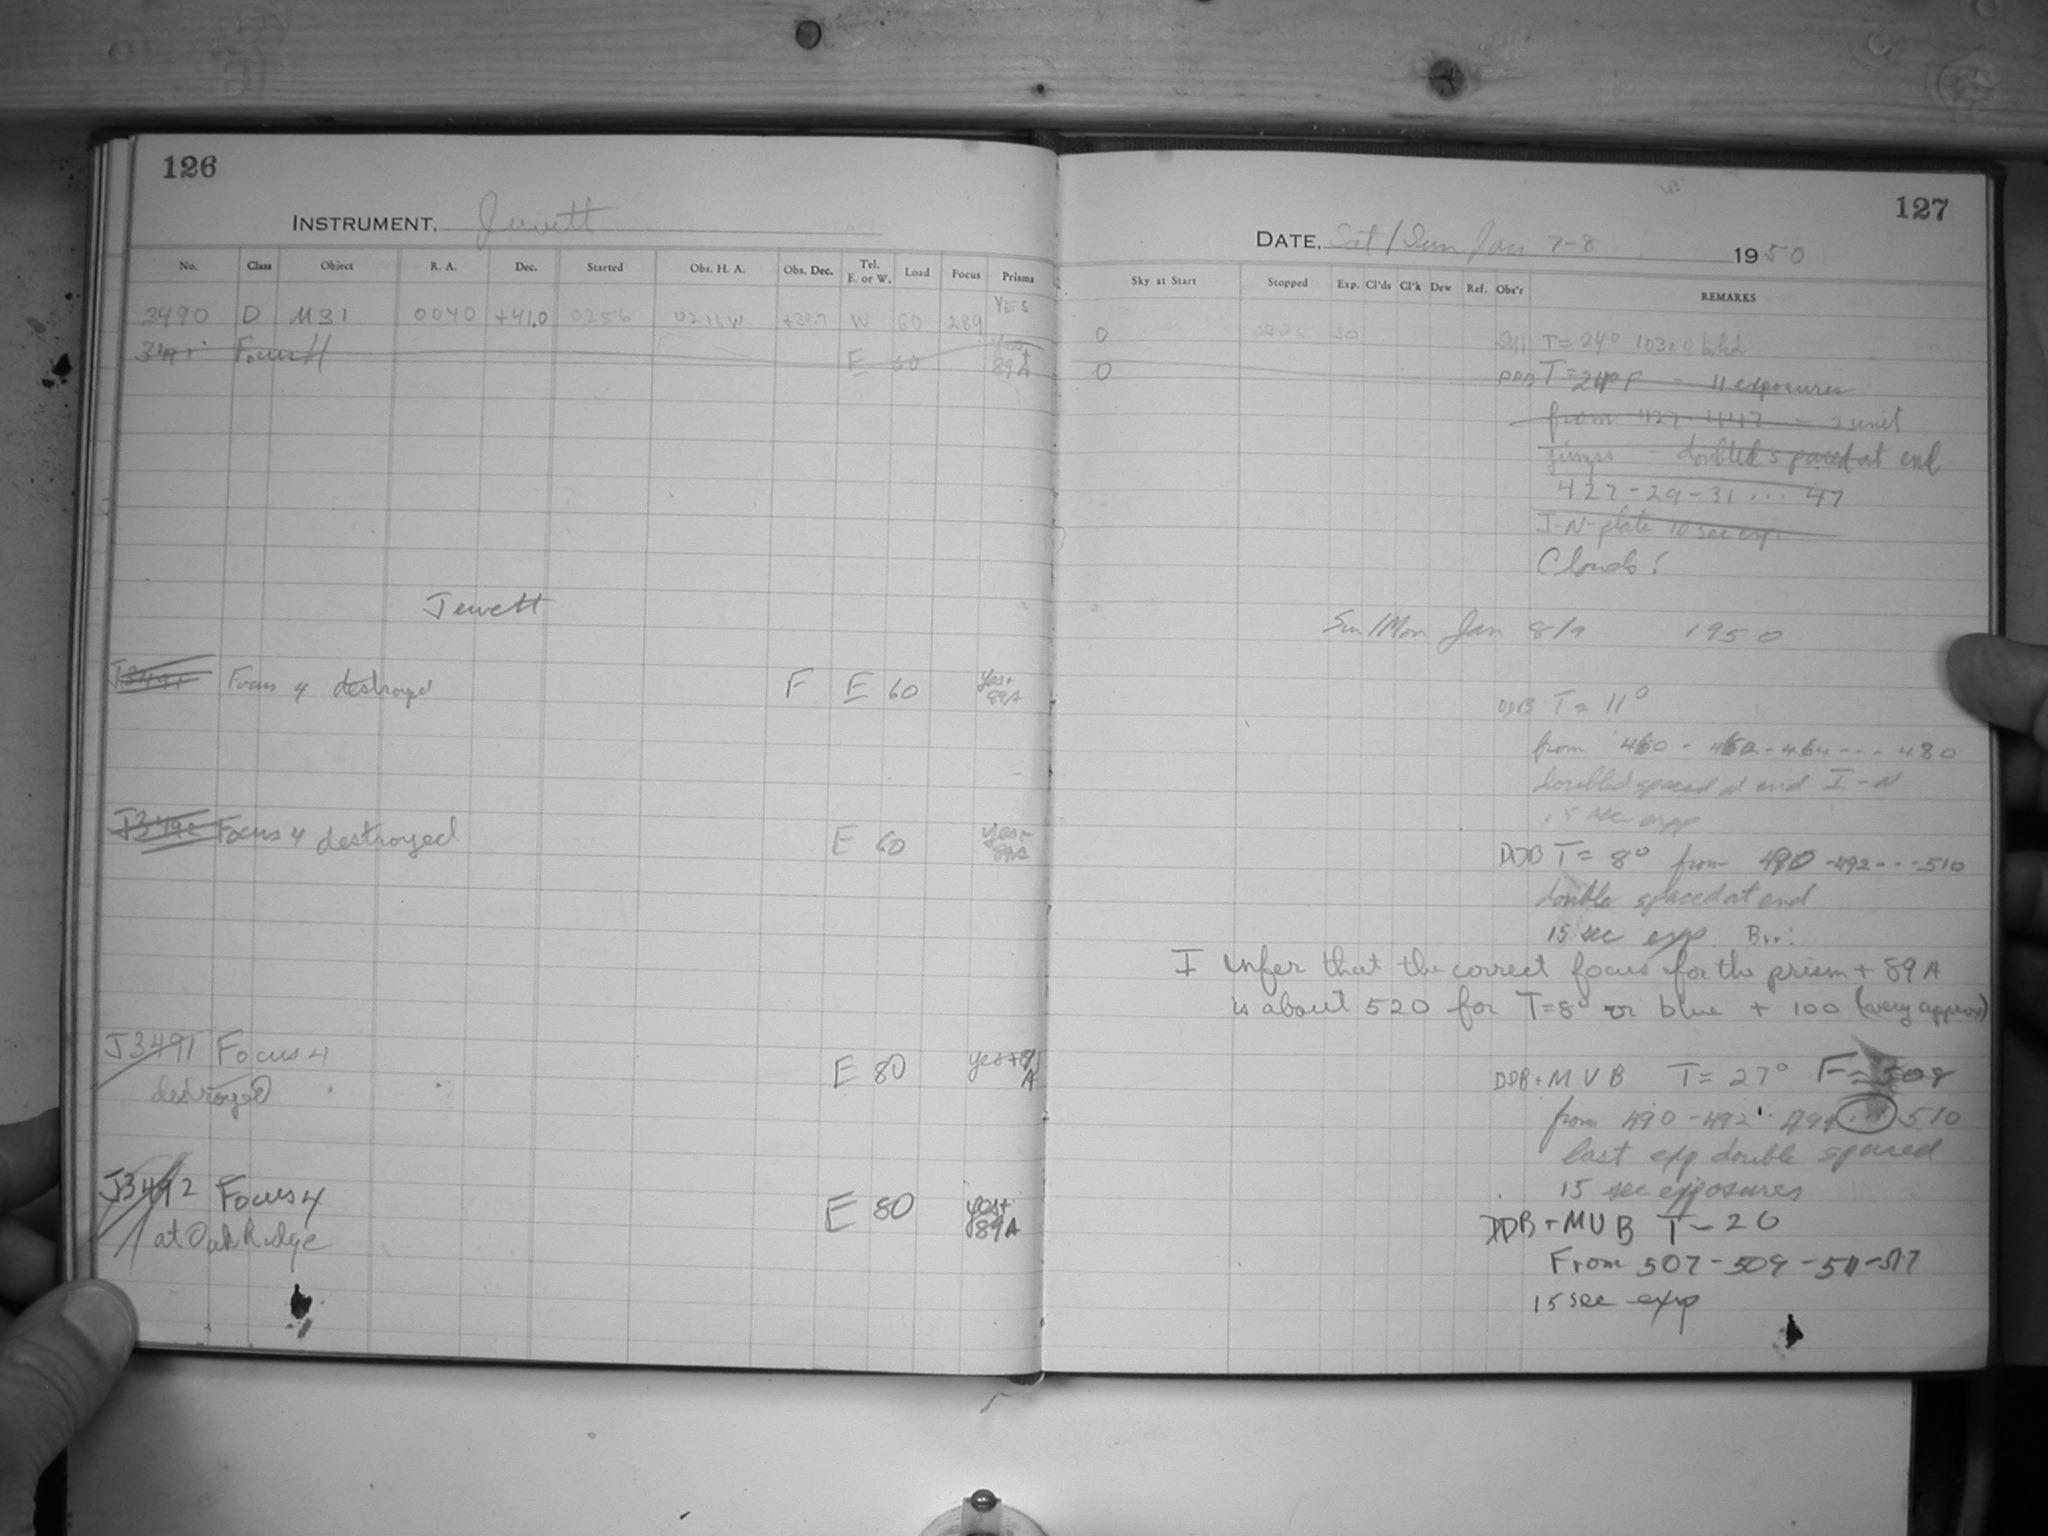 126
INSTRUMENT. Jewett
No. Class Object R. A. Dec. Started Obs. H. A. Obs. Dec. Tel. E. or W. Load Focus Prisms
3490 D M31 0040 +41.0 0256 W 60 289 YES
3491 Focus 4 E 60 Yes+ 89A
Jewett
J3491 Focus 4 destroyed F E 60 yes+ 89A
J3492 Focus 4 destroyed E 60 yes+ 89A
J3491 Focus 4 E 80 yes+89A
destroyed
J3492 Focus 4 E 80 yes+ 89A
at Oak Ridge
127
DATE, Sat/Sun Jan 7-8 1950
Sky at Start Stopped Exp. Cl'ds Cl'k Dew Ref. Obs'r REMARKS
0 30 T=24° 103aO
0 DDB T=24°F - 11 exposures
from 427-447 - 2 unit
jumps - doubled spaced at end
427-29-31 ... 47
I-N-plate 10 sec exp.
Clouds!
Sun/Mon Jan 8/9 1950
DDB T = 11°
from 460-462-464 --- 480
doubled spaced at end I-N
15 sec exp
DDB T = 8° from 490-492---510
double spaced at end
15 sec exp. Brr!
I infer that the correct focus for the prism + 89A
is about 520 for T=8° or blue + 100 (very approx)
DDB+MVB T= 27° F= 508
from 490-492-494 ... 510
last exp double spaced
15 sec exposures
DDB+MVB T-20
From 507-509-511-517
15 sec exp